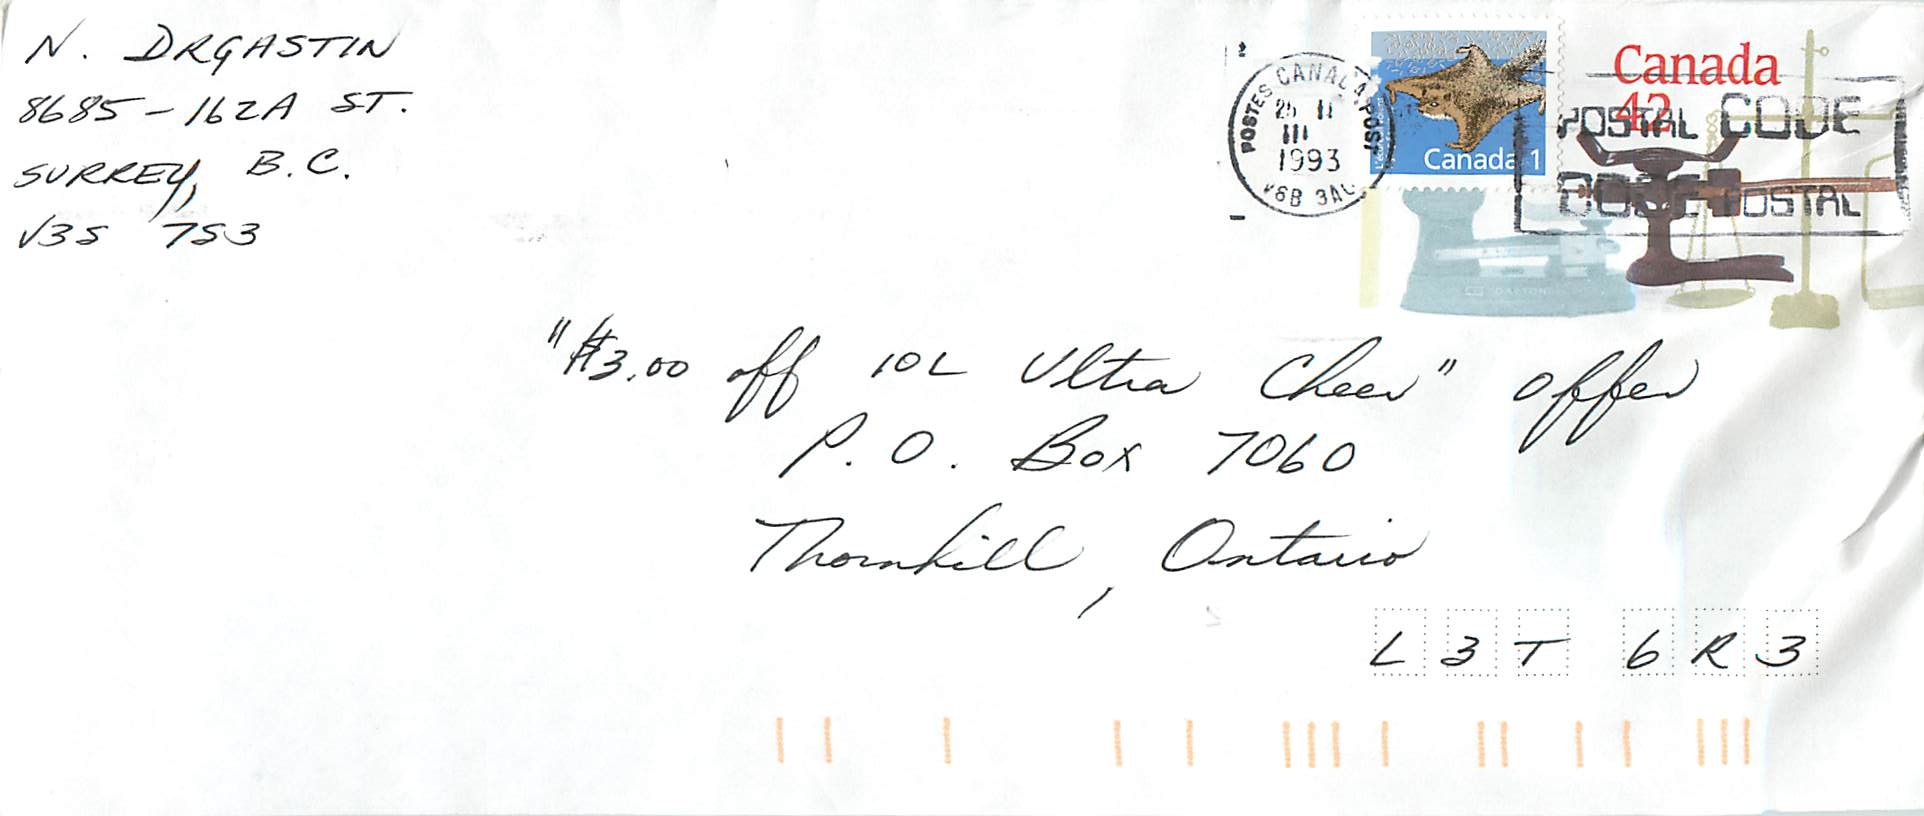 N. DRGASTIN
8685-162A ST.
SURREY, B.C.
V3S 7S3
POSTES CANADA POST
25 II
III
1993
V6B 3A
Canada 1
Canada
42
POSTAL CODE
CODE POSTAL
"$3.00 off 10L Ultra Cheer" offer
P.O. Box 7060
Thornhill, Ontario
L3T 6R3